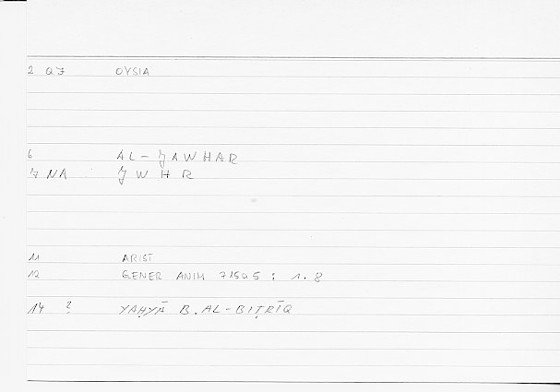 2 QJ OYSIA
6 AL-ǦAWHAR
7 NA ǦWHR
11 ARIST
12 GENER ANIM 715a5 : 1.8
14 2 YAḤYĀ B.AL-BIṬRĪQ